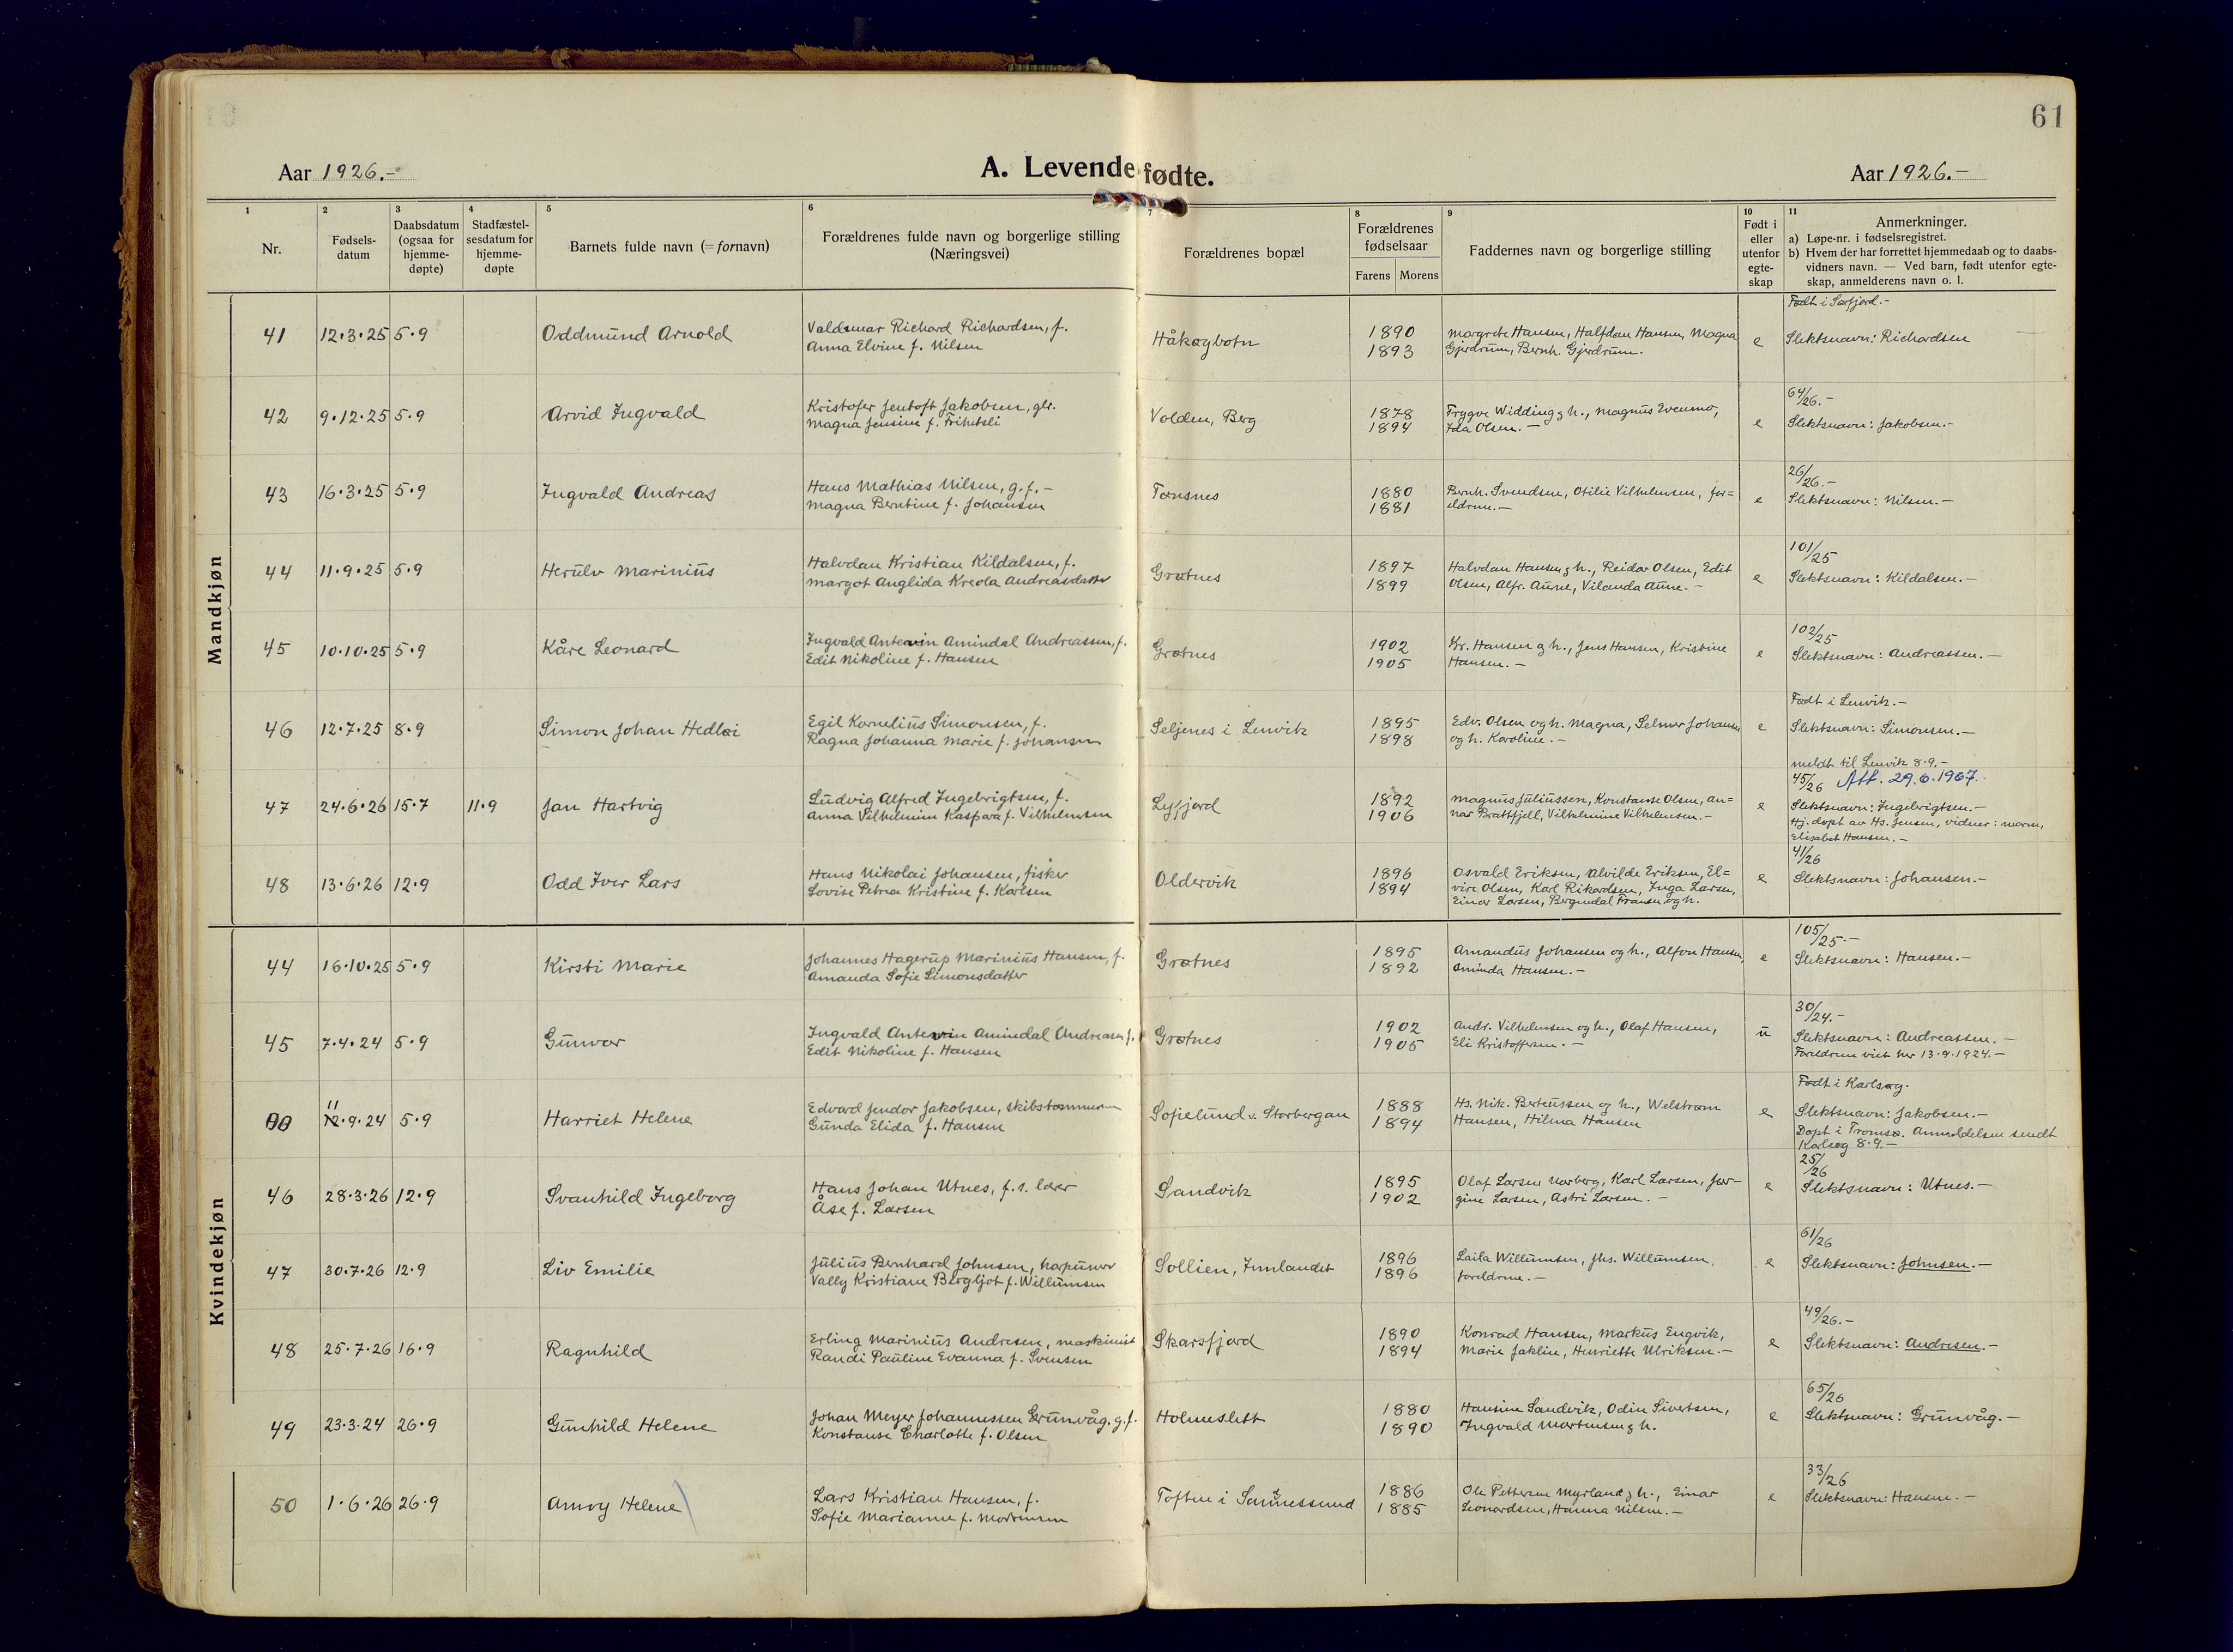 61
Aar 1926.-
A. Levendefødte.
Aar 1926.-
1 2 3 4 5 6 7 8 9 10 11
Nr.
Fødsels-
datum
Daabsdatum
(ogsaa for
hjemme-
døpte)
Stadfæstel-
sesdatum for
hjemme-
døpte
Barnets fulde navn (= fornavn)
Forældrenes fulde navn og borgerlige stilling
(Næringsvei)
Forældrenes bopæl
Forældrenes
fødselsaar
Farens Morens
Faddernes navn og borgerlige stilling
Født i
eller
utenfor
egte-
skap
Anmerkninger.
a) Løpe-nr. i fødselsregistret.
b) Hvem der har forrettet hjemmedaab og to daabs-
vidners navn. — Ved barn, født utenfor egte-
skap, anmelderens navn o. l.
Mandkjøn
Født i Sørfjord.-
41 12.3.25 5.9 Oddmund Arnold Valdemar Richard Richardsen, f. Håkøybotn 1890 Margrete Hansen, Halfdan Hansen, Magna e Slektsnavn: Richardsen
Anna Elvine f. Nilsen 1893 Gjerdrum, Bernh. Gjerdrum.
64/26.-
42 9.12.25 5.9 Arvid Ingvald Kristofer Jentoft Jakobsen, glr. Volden, Berg 1878 Trygve Widding g h., Magnus Evenmo, e Slektsnavn: Jakobsen.-
Magna Jensine f. Trihetsli 1894 Ida Olsen.-
26/26.-
43 16.3.25 5.9 Ingvald Andreas Hans Mathias Nilsen, g.f.- Tønsnes 1880 Bernh. Svendsen, Otilie Vilhelmsen, for= e Slektsnavn: Nilsen.-
Magna Berntine f. Johansen 1881 eldrene.-
101/25
44 11.9.25 5.9 Herulv Marinius Halvdan Kristian Kildalsen, f. Grøtnes 1897 Halvdan Hansen g h., Reidar Olsen, Edit e Slektsnavn: Kildalsen.-
Margot Anglida Kreola Andreasdatter 1899 Olsen, Alfr. Aune, Vilanda Aune.-
102/25
45 10.10.25 5.9 Kåre Leonard Ingvald Antonin Amindal Andreassen, f. Grøtnes 1902 Kr. Hansen g h., Jens Hansen, Kristine e Slektsnavn: Andreassen.-
Edit Nikoline f. Hansen 1905 Hansen.-
Født i Lenvik.-
46 12.7.25 8.9 Simon Johan Hedløi Egil Kornelius Simonsen, f. Seljenes i Lenvik 1895 Edv. Olsen og h. Magna, Selmer Johansen e Slektsnavn: Simonsen.-
Ragna Johanna Marie f. Johansen 1898 og h. Karoline.-
meldt til Lenvik 8.9.-
45/26 Att. 29.6.1967.
47 24.6.26 15.7 11.9 Jan Hartvig Ludvig Alfred Ingebrigtsen, f. Lyfjord 1892 Magnus Juliussen, Konstanse Olsen, An= e Slektsnavn: Ingebrigtsen.-
Anna Vilhelmine Kaspara f. Vilhelmsen 1906 nar Brattfjell, Vilhelmine Vilhelmsen.-
Hj. døpt av Hs. Jensen, vidner: moren,
Elisabet Hansen.-
41/26
48 13.6.26 12.9 Odd Iver Lars Hans Nikolai Johansen, fisker Oldervik 1896 Osvald Eriksen, Alvilde Eriksen, El= e Slektsnavn: Johansen.-
Lovise Petrea Kristine f. Karlsen 1894 vire Olsen, Karl Rikardsen, Inga Larsen,
Einar Larsen, Bergendal Fransen og h.
Kvindekjøn
105/25.-
44 16.10.25 5.9 Kirsti Marie Johannes Hagerup Marinius Hansen, f. Grøtnes 1895 Amandus Johansen og h., Alfon Hansen, e Slektsnavn: Hansen.-
Amanda Sofie Simonsdatter 1892 Aminda Hansen.-
30/24.-
45 7.4.24 5.9 Gunvor Ingvald Antonin Amindal Andreasen f. Grøtnes 1902 Andr. Vilhelmsen og h., Olaf Hansen, u Slektsnavn: Andreassen.-
Edit Nikoline f. Hansen 1905 Eli Kristoffersen.- Foreldrene viet her 13.9.1924.-
Født i Karlsøy.
00 11.9.24 5.9 Harriet Helene Edvard Jendor Jakobsen, skibstømmerm. Sofielund v. Storbergan 1888 Hs. Nik. Berteussen og h., Welstrøm e Slektsnavn: Jakobsen.-
Gunda Elida f. Hansen 1894 Hansen, Hilma Hansen
Døpt i Tromsø. Anmeldelsen sendt
Karlsøy 8.9.-
25/26
46 28.3.26 12.9 Svanhild Ingeborg Hans Johan Utnes, f.s. lærer Sandvik 1895 Olaf Larsen Norberg, Karl Larsen, Jør- e Slektsnavn: Utnes.-
Åse f. Larsen 1902 gine Larsen, Astri Larsen.-
61/26
47 30.7.26 12.9 Liv Emilie Julius Bernhard Johnsen, harpuner Sollien, Innlandet 1896 Laila Willumsen, Jhs. Willumsen, e Slektsnavn: Johnsen.-
Vally Kristiane Bergljot f. Willumsen 1896 foreldrene.-
49/26.-
48 25.7.26 16.9 Ragnhild Erling Marinius Andresen, maskinist Skarsfjord 1890 Konrad Hansen, Markus Engvik, e Slektsnavn: Andresen.-
Randi Pauline Evanna f. Svensen 1894 Marie Jaklin, Henriette Ulriksen.-
65/26
49 23.3.24 26.9 Gunhild Helene Johan Meyer Johannessen Grunvåg, g.f. Holmeslett 1880 Hansine Sandvik, Odin Sivertsen, e Slektsnavn: Grunvåg.-
Konstanse Charlotte f. Olsen 1890 Ingvald Mortensen g h.
33/26
50 1.6.26 26.9 Amoy Helene Lars Kristian Hansen, f. Toften i Sannessund 1886 Ole Pettersen Myrland g h., Einar e Slektsnavn: Hansen.-
Sofie Marianne f. Mortensen 1885 Leonardsen, Hanna Nilsen.-